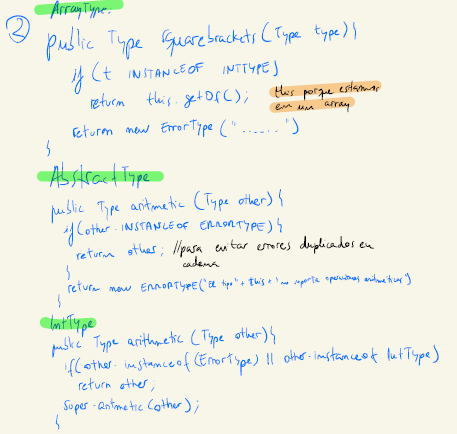 ArrayType.
② public Type squarebrackets (Type type) {
if (t INSTANCEOF INTTYPE)
return this.getOf(); this porque estamos
em um array
return new ErrorType ("......")
}
AbstractType
public Type aritmetic (Type other) {
if (other. INSTANCEOF ERRORTYPE) {
return other; //para evitar errores duplicados en
cadena
}
return new ERRORTYPE("El tipo" + this + " no soporta operaciones aritmeticas")
}
IntType
public Type arithmetic (Type other) {
if (other. instanceof (ErrorType) || other. instanceof IntType)
return other;
super.aritmetic (other);
}